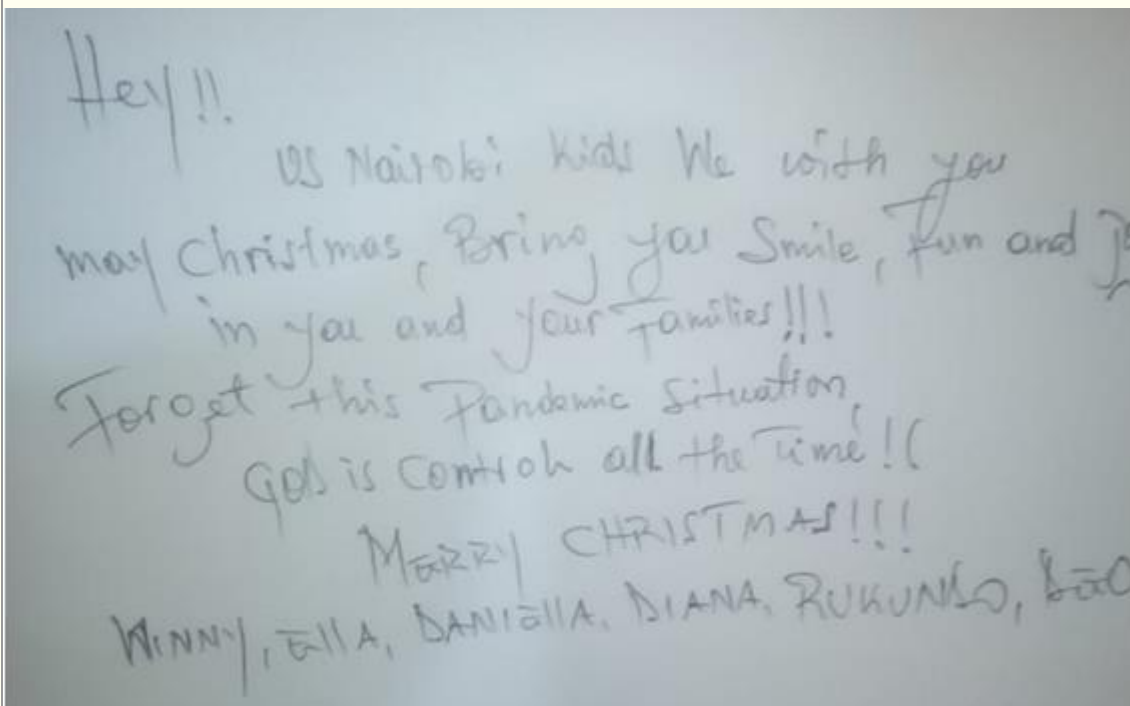 Hey!!
US Nairobi kids We with you
may Christmas, Bring you Smile, Fun and
in you and your Families!!!
Forget this Pandemic Situation,
GOD is Control all the Time!!
MERRY CHRISTMAS!!!
WINNY, EllA, DANIEllA, DIANA, RUKUNDO,